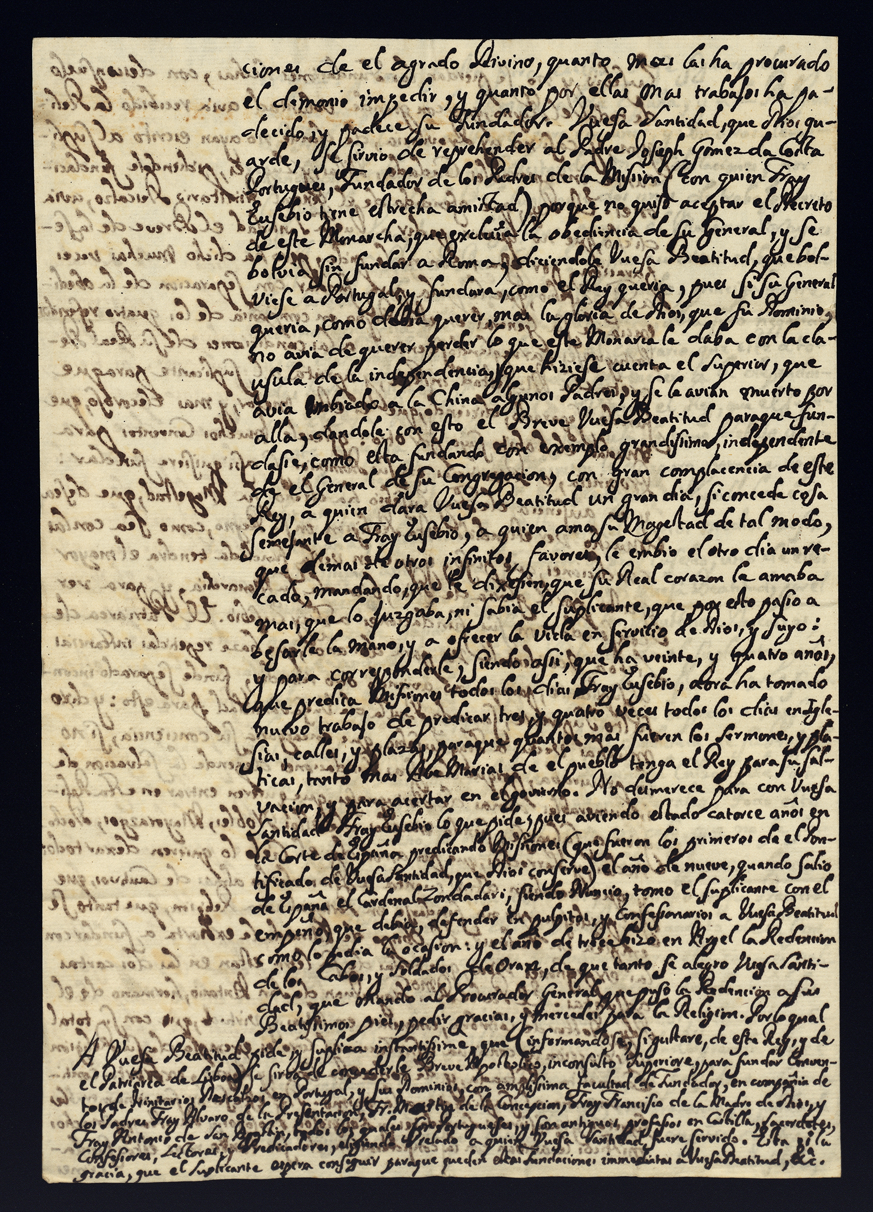 ciones de el agrado Divino, quanto mas las ha procurado
el demonio impedir, y quanto por ellas mas trabajos ha pa-
decido, y padece su Fundador. Vuesa Santidad, que Dios gu-
arde, se sirvio de reprehender al Padre Joseph Gomez da Costa
Portugues, Fundador de los Padres de la Mission (con quien Fray
Eusebio tiene estrecha amistad) porque no quiso aceptar el Decreto
de este Monarcha, que excluia la obediencia de su General, y se
bolvia sin fundar a Roma, diciendole Vuesa Beatitud, que bol-
viese a Portugal, y fundara, como el Rey queria, pues si su General
queria, como debia querer, mas la gloria de Dios, que su Dominio,
no avia de querer perder lo que este Monarca le daba con la cla-
usula de la independencia, y que hiziese cuenta el Superior, que
avia embiado a la China algunos Padres, y se le avian muerto por
alla, dandole con esto el Breve Vuesa Beatitud paraque fun-
dasse, como esta fundando con exemplo grandissimo, independente
de el General de su Congregacion, con gran complacencia de este
Rey, a quien dara Vuesa Beatitud un gran dia, si concede cosa
semejante a Fray Eusebio, a quien ama su Magestad de tal modo,
que demas de otros infinitos favores, le embio el otro dia un re-
cado, mandando, que le dixesen, que su Real corazon le amaba
mas, que lo juzgaba, ni sabia el suplicante, que por esto paso a
besarle la mano, y a ofrecer la vida en servicio de Dios, y suyo:
y para corresponderle, siendo assi, que ha veinte, y quatro años,
que predica Missiones todos los dias Fray Eusebio, aora ha tomado
nuevo trabajo de predicar tres, y quatro veces todos los dias en Igle-
sias, calles, y plazas, paraque quantos mas fueren los sermones, y pla-
ticas, tanto mas Ave Marias de el pueblo tenga el Rey para su sal-
vacion, y para acertar en el govierno. No desmerece para con Vuesa
Santidad Fray Eusebio lo que pide, pues aviendo estado catorce años en
la Corte de España predicando Missiones (que fueron los primeros de el Pon-
tificado de Vuesa Santidad, que Dios conserve) el año de nueve, quando salio
de España el Cardenal Zondadari, siendo Nuncio, tomo el suplicante con el
empeño, que debia, defender en pulpitos, y Confesionarios a Vuesa Beatitud
como lo pedia la ocasion: y el año de trece hizo en Argel la Redencion
de los Cabos, y Soldados de Oran, de que tanto se alegro Vuesa Santi-
dad, que mando al Procurador General, que puso la Redencion a sus
Beatissimos pies, pedir gracias, y mercedes para la Religion. Por lo qual
A Vuesa Beatitud pide y suplica instantissime, que (informandose, si gustare, de este Rey, y de
el Patriarca de Lisboa) se sirva de concederle Breve Apostolico, inconsulto Superiore, para fundar Conven-
tos de Trinitarios Descalzos en Portugal, y sus Dominios, con amplissima facultad de Fundador, en compañia de
los Padres Fray Alvaro de la Presentacion, Fr. Martin de la Concepcion, Fray Francisco de la Madre de Dios, y
Fray Antonio de San Agustin, todos los quales son Portugueses, y son antiguos, professos en Castilla, Sacerdotes,
Confesores, Lectores, y Predicadores, eligiendo Prelado a quien Vuesa Santidad fuere servido. Esta es la
gracia, que el Suplicante espera conseguir paraque queden estas fundaciones immediatas a Vuesa Beatitud, &c.